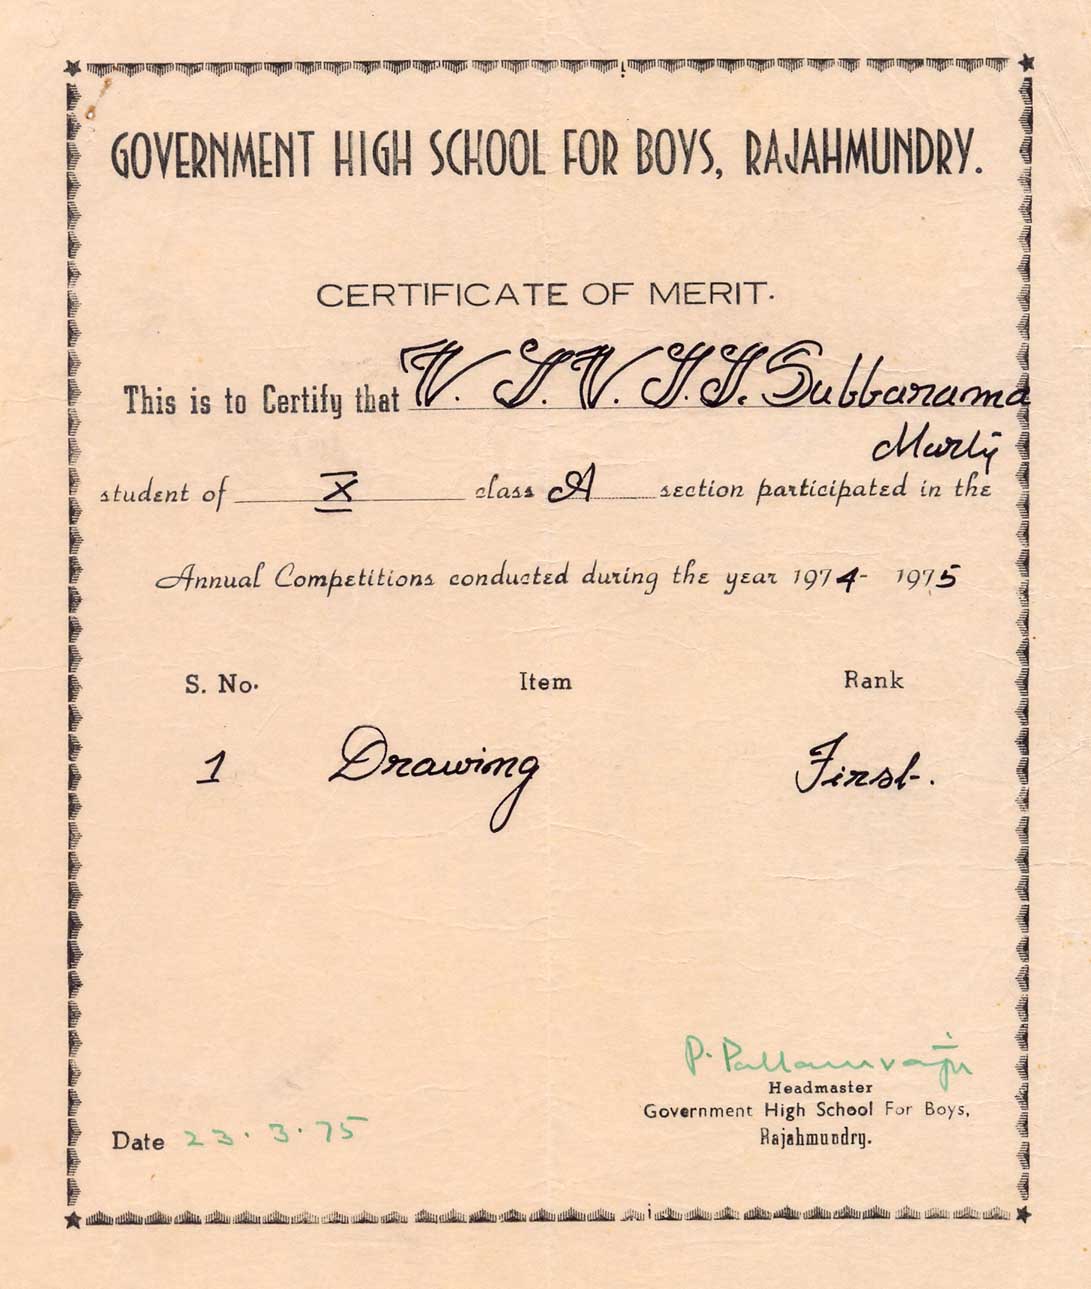 GOVERNMENT HIGH SCHOOL FOR BOYS, RAJAHMUNDRY.
CERTIFICATE OF MERIT.
This is to Certify that V. S. V. S. S. Subbarama
Murty
student of X class A section participated in the
Annual Competitions conducted during the year 1974- 1975
S. No. Item Rank
1 Drawing First.
P. Pallamraju
Headmaster
Government High School For Boys,
Rajahmundry.
Date 23.3.75